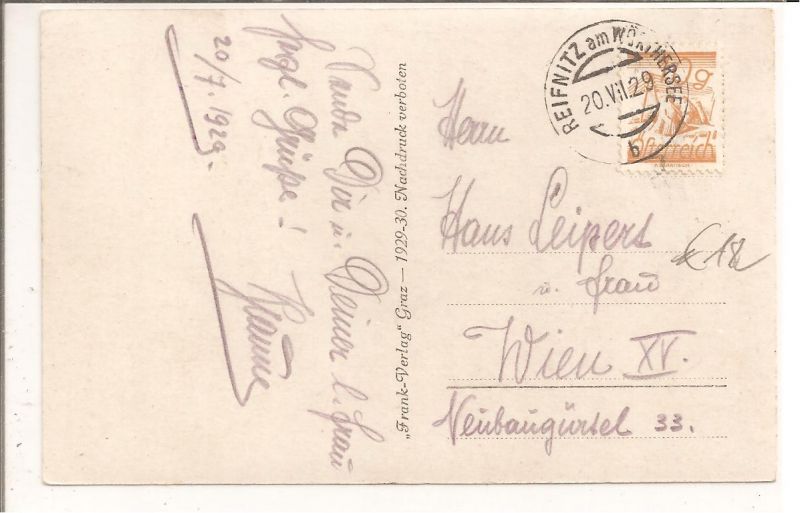 20/7. 1929.
Sende Dir u. Deiner l. Frau
herzl. Grüße!
„Frank-Verlag“ Graz — 1929-30. Nachdruck verboten
REIFNITZ am WÖRTHERSEE
20.VII.29
b
g
Österreich
Herrn
Hans Leipert
u. Frau
Wien XV.
Neubaugürtel 33.
€ 18